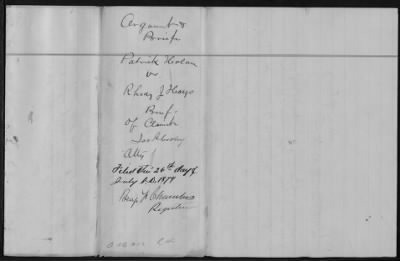 Argument &
Briefs
Patrick
vs
Rhody J Hays
Brief
Of
Atty
Filed this 26th day of
July A.D. 1879
Benj F Chambers
Register